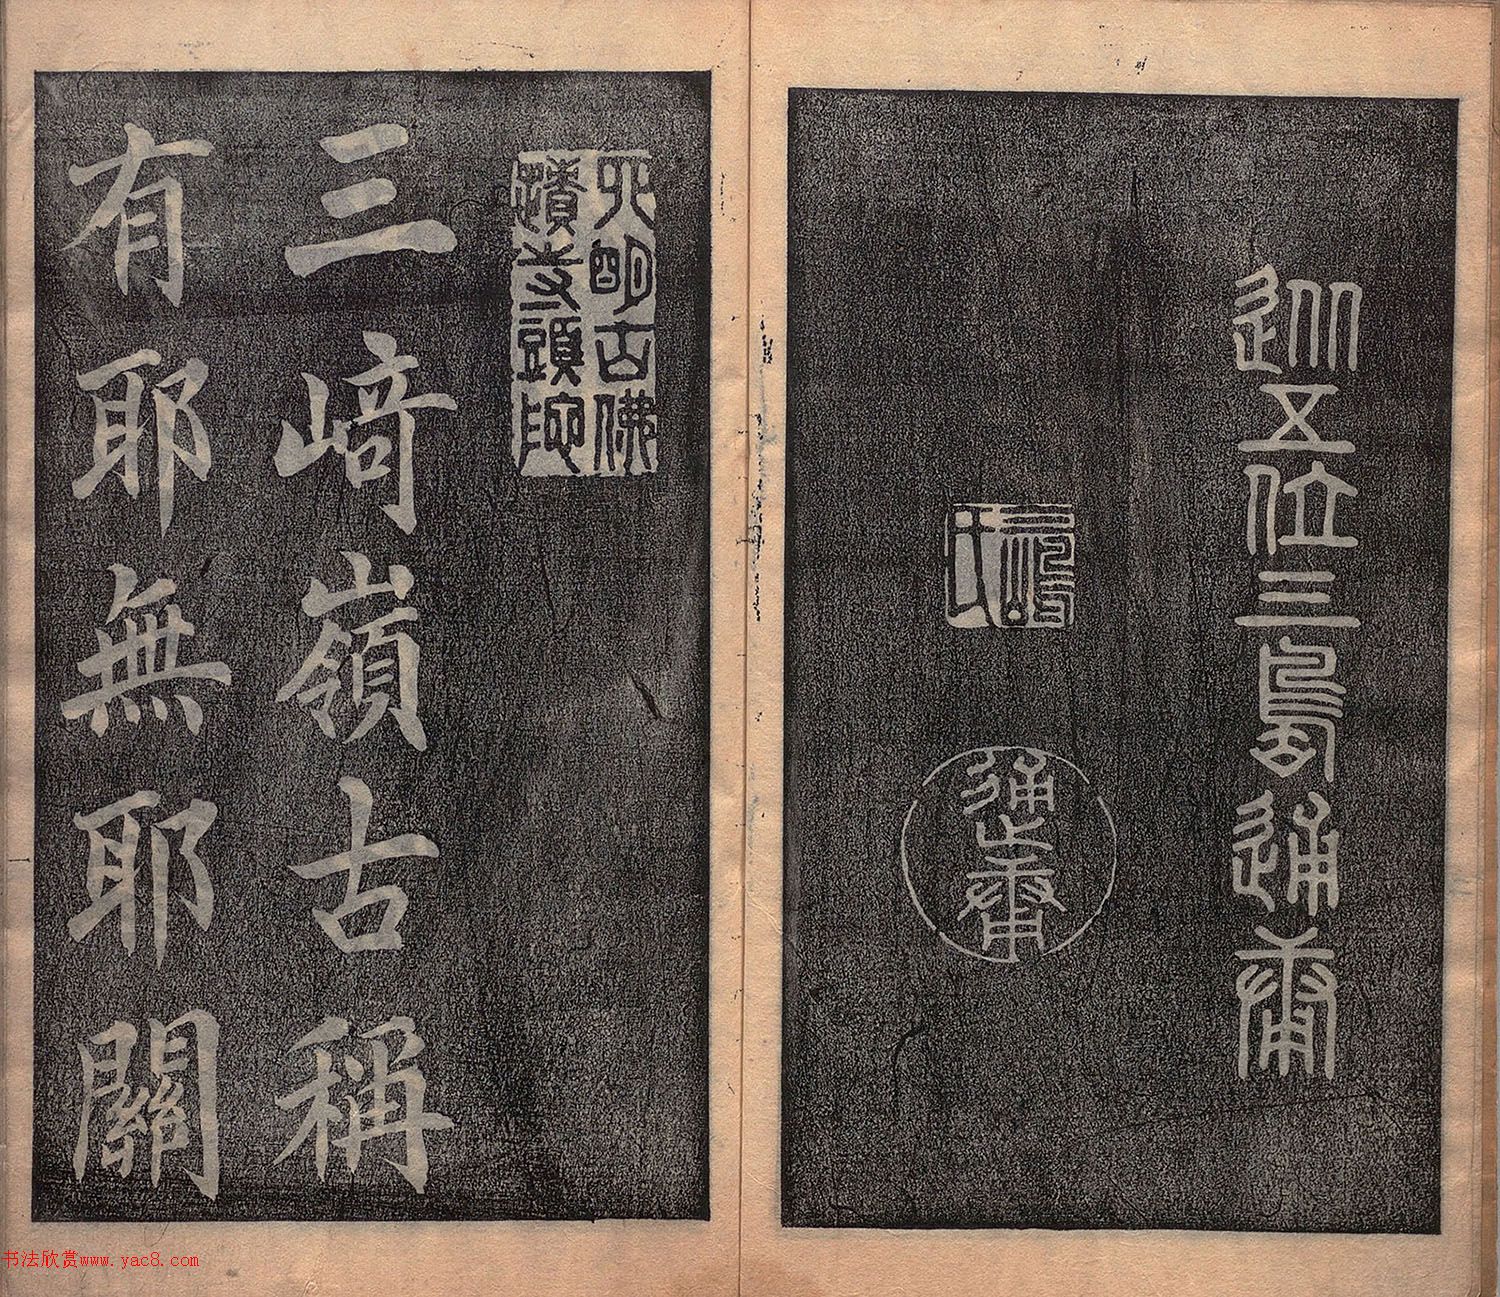 從五位三島通庸
三崎嶺古稱
有耶無耶關
书法欣赏www.yac8.com